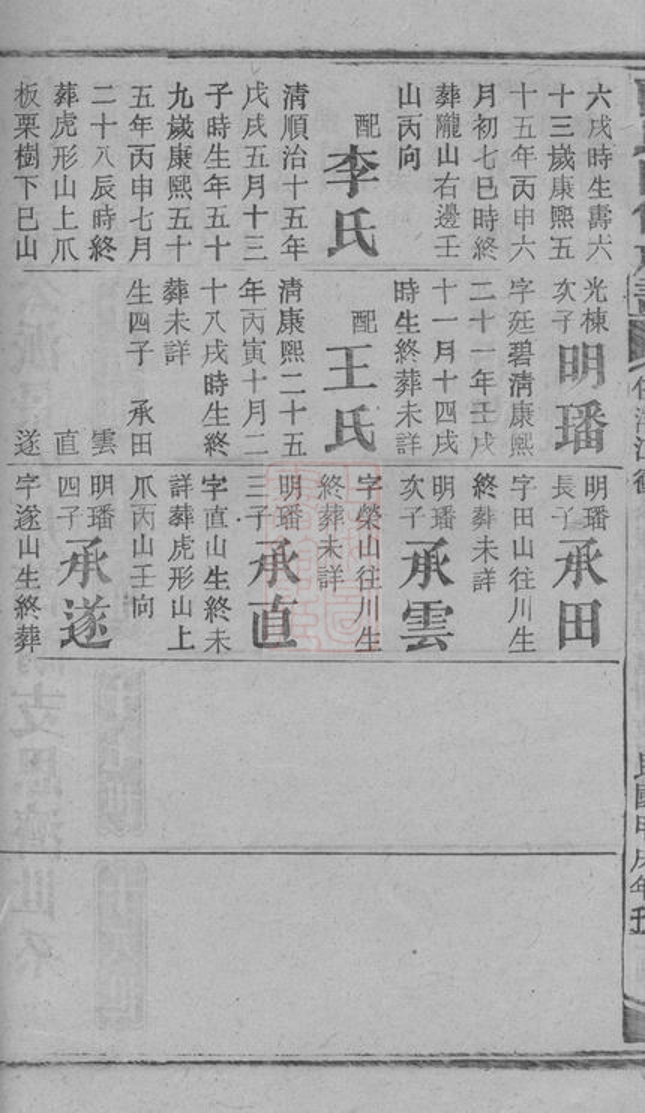 六戌時生壽六
十三歲康熙五
十五年丙申六
月初七巳時終
葬隴山右邊壬
山丙向
配李氏
清順治十五年
戊戌五月十三
子時生年五十
九歲康熙五十
五年丙申七月
二十八辰時終
葬虎形山上爪
板栗樹下巳山
光棟
次子
明璠
字廷碧清康熙
二十一年壬戌
十一月十四戌
時生終葬未詳
配王氏
清康熙二十五
年丙寅十月二
十八戌時生終
葬未詳
生四子 承田
雲
直
遂
明璠
長子
承田
字田山往川生
終葬未詳
明璠
次子
承雲
字榮山往川生
終葬未詳
明璠
三子
承直
字直山生終未
詳葬虎形山上
爪丙山壬向
明璠
四子
承遂
字遂山生終葬